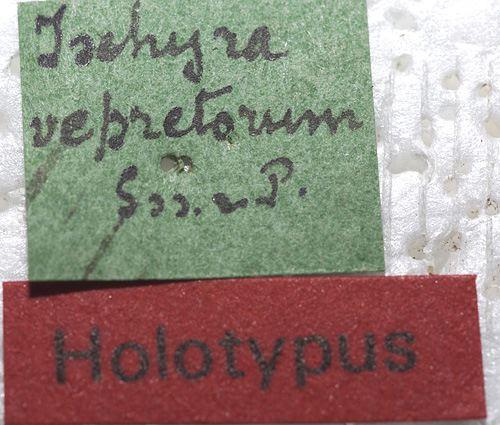 Ischyra
vepretorum
Holotypus